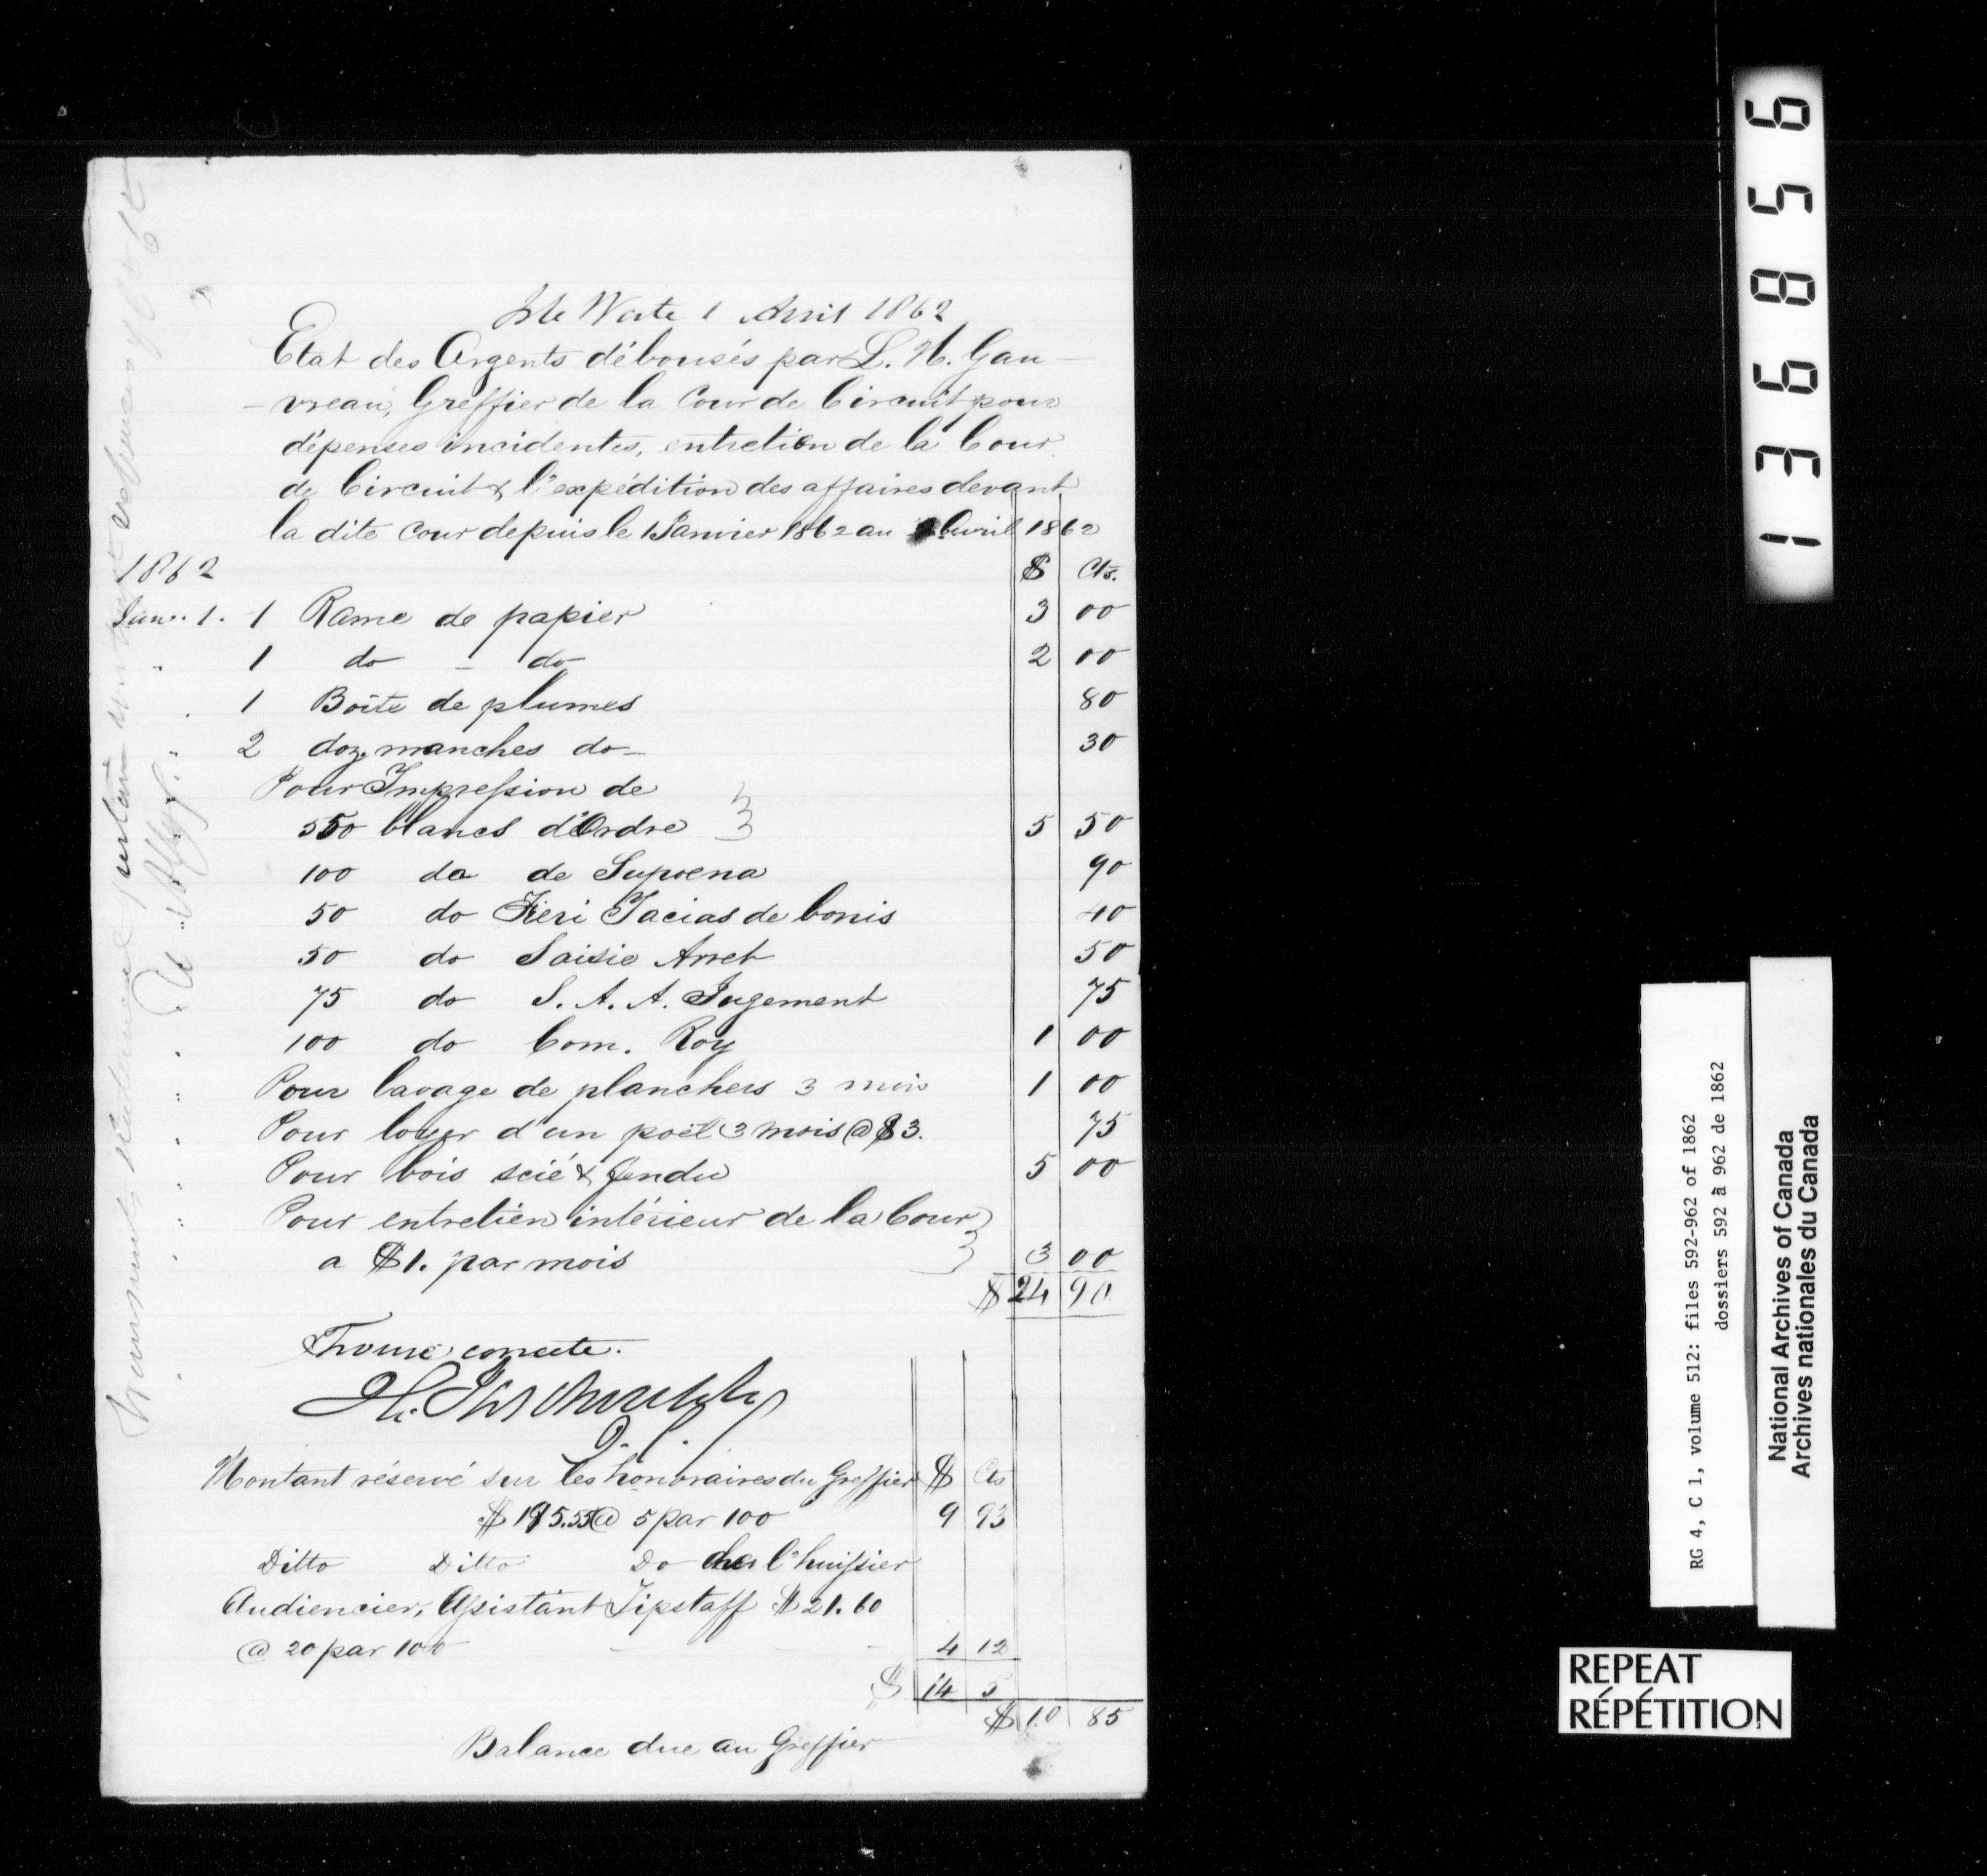 Isle Verte 1 Avril 1862
Etat des Argents débousés par L. N. Gau-
-vreau, Greffier de la Cour de Circuit pour
dépenses incidentes, entretien de la Cour
de Circuit & l'expédition des affaires devant
la dite Cour depuis le 1 Janvier 1862 au 1 Avril 1862
1862 $ Cts.
Janv. 1. 1 Rame de papier 3 00
" 1 do - do 2 00
" 1 Boîte de plumes 80
" 2 doz. manches do- 30
Pour Impression de
550 blancs d'Ordre 5 50
100 do de Supoena 90
50 do Fieri Facias de bonis 40
50 do Saisie Arret 50
75 do S. A. A. Jugement 75
100 do Com. Roy 1 00
" Pour lavage de planchers 3 mois 1 00
" Pour loyer d'un poël 3 mois @ $3. 75
" Pour bois scié & fendu 5 00
" Pour entretien intérieur de la Cour
a $1. par mois 3 00
$ 24 90
Trouvé correcte.
Montant réservé sur les honoraires du Greffier $ Cts
$ 195.55 @ 5 par 100 9 93
Ditto Ditto Do l'huissier
Audiencier, Assistant Tipstaff $ 21.60
@ 20 par 100 - - 4 12
$ 14 5
$ 10 85
Balance due au Greffier
136856
RG 4, C 1, volume 512: files 592-962 of 1862
dossiers 592 à 962 de 1862
National Archives of Canada
Archives nationales du Canada
REPEAT
RÉPÉTITION